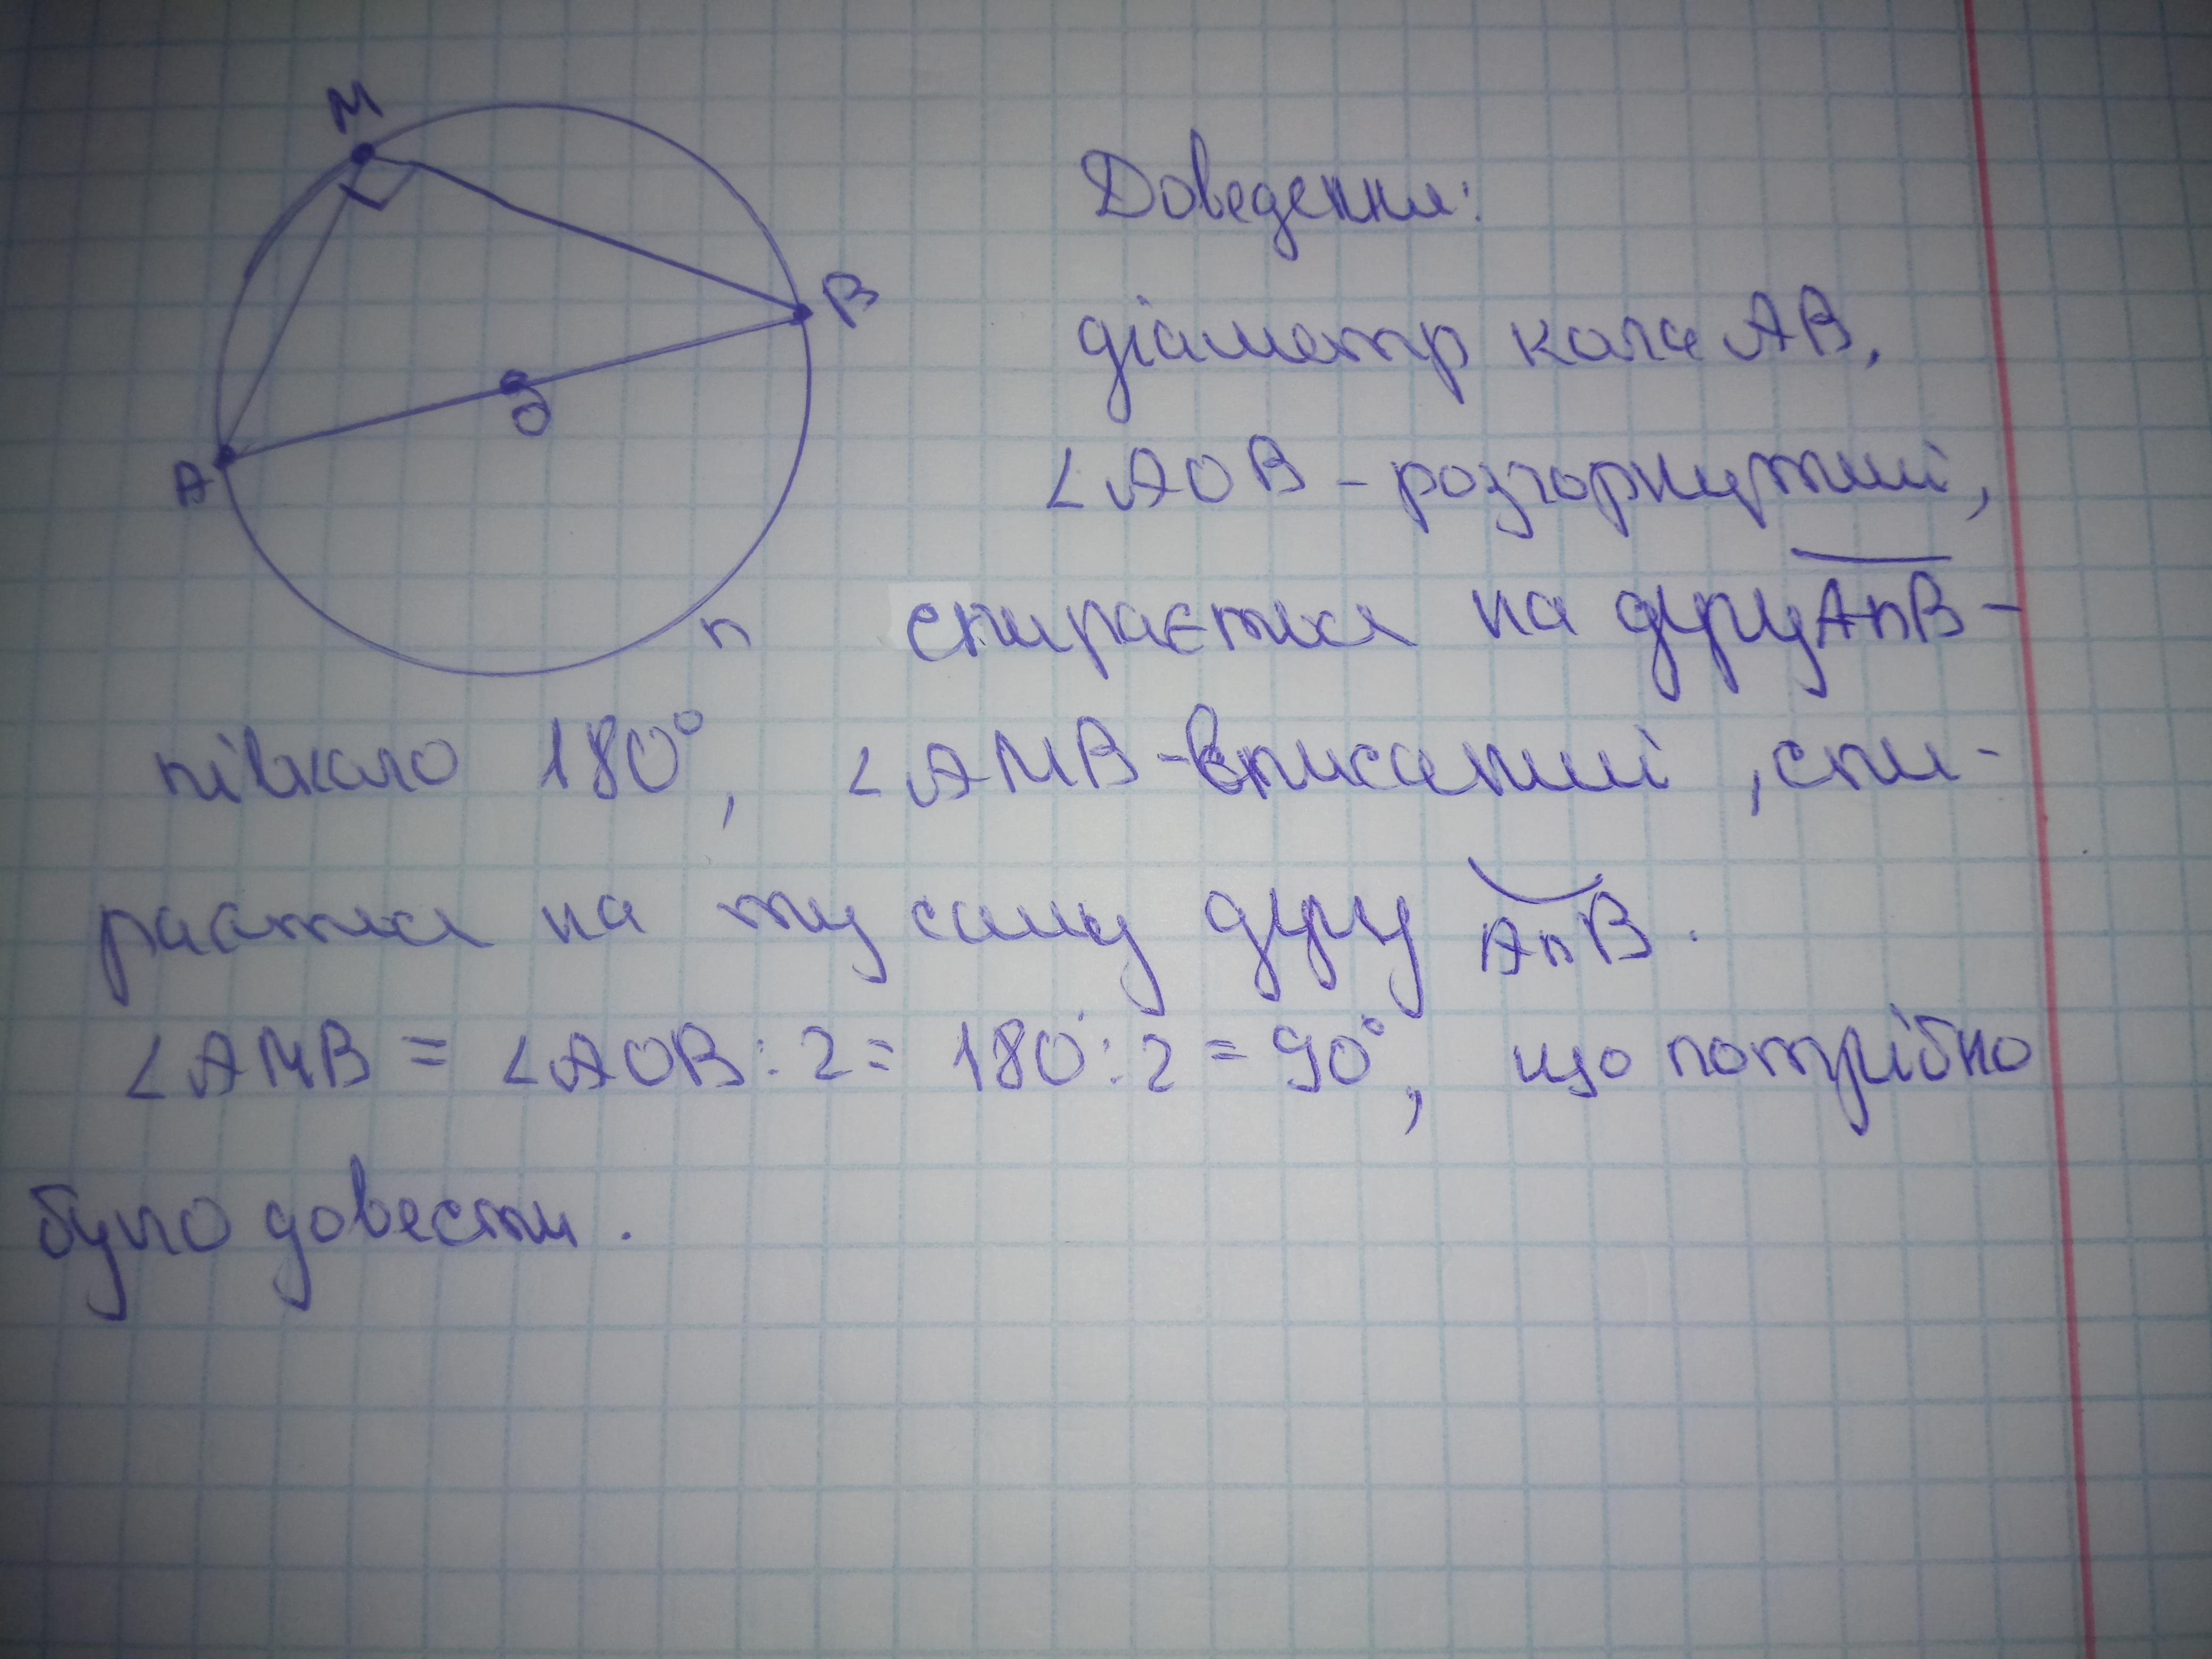 M
B
O
A
n
Доведення:
діаметр кола AB,
∠AOB - розгорнутий,
спирається на дугу AnB -
півколо 180°, ∠AMB - вписаний, спи-
рається на ту саму дугу AnB.
∠AMB = ∠AOB : 2 = 180° : 2 = 90°, що потрібно
було довести.